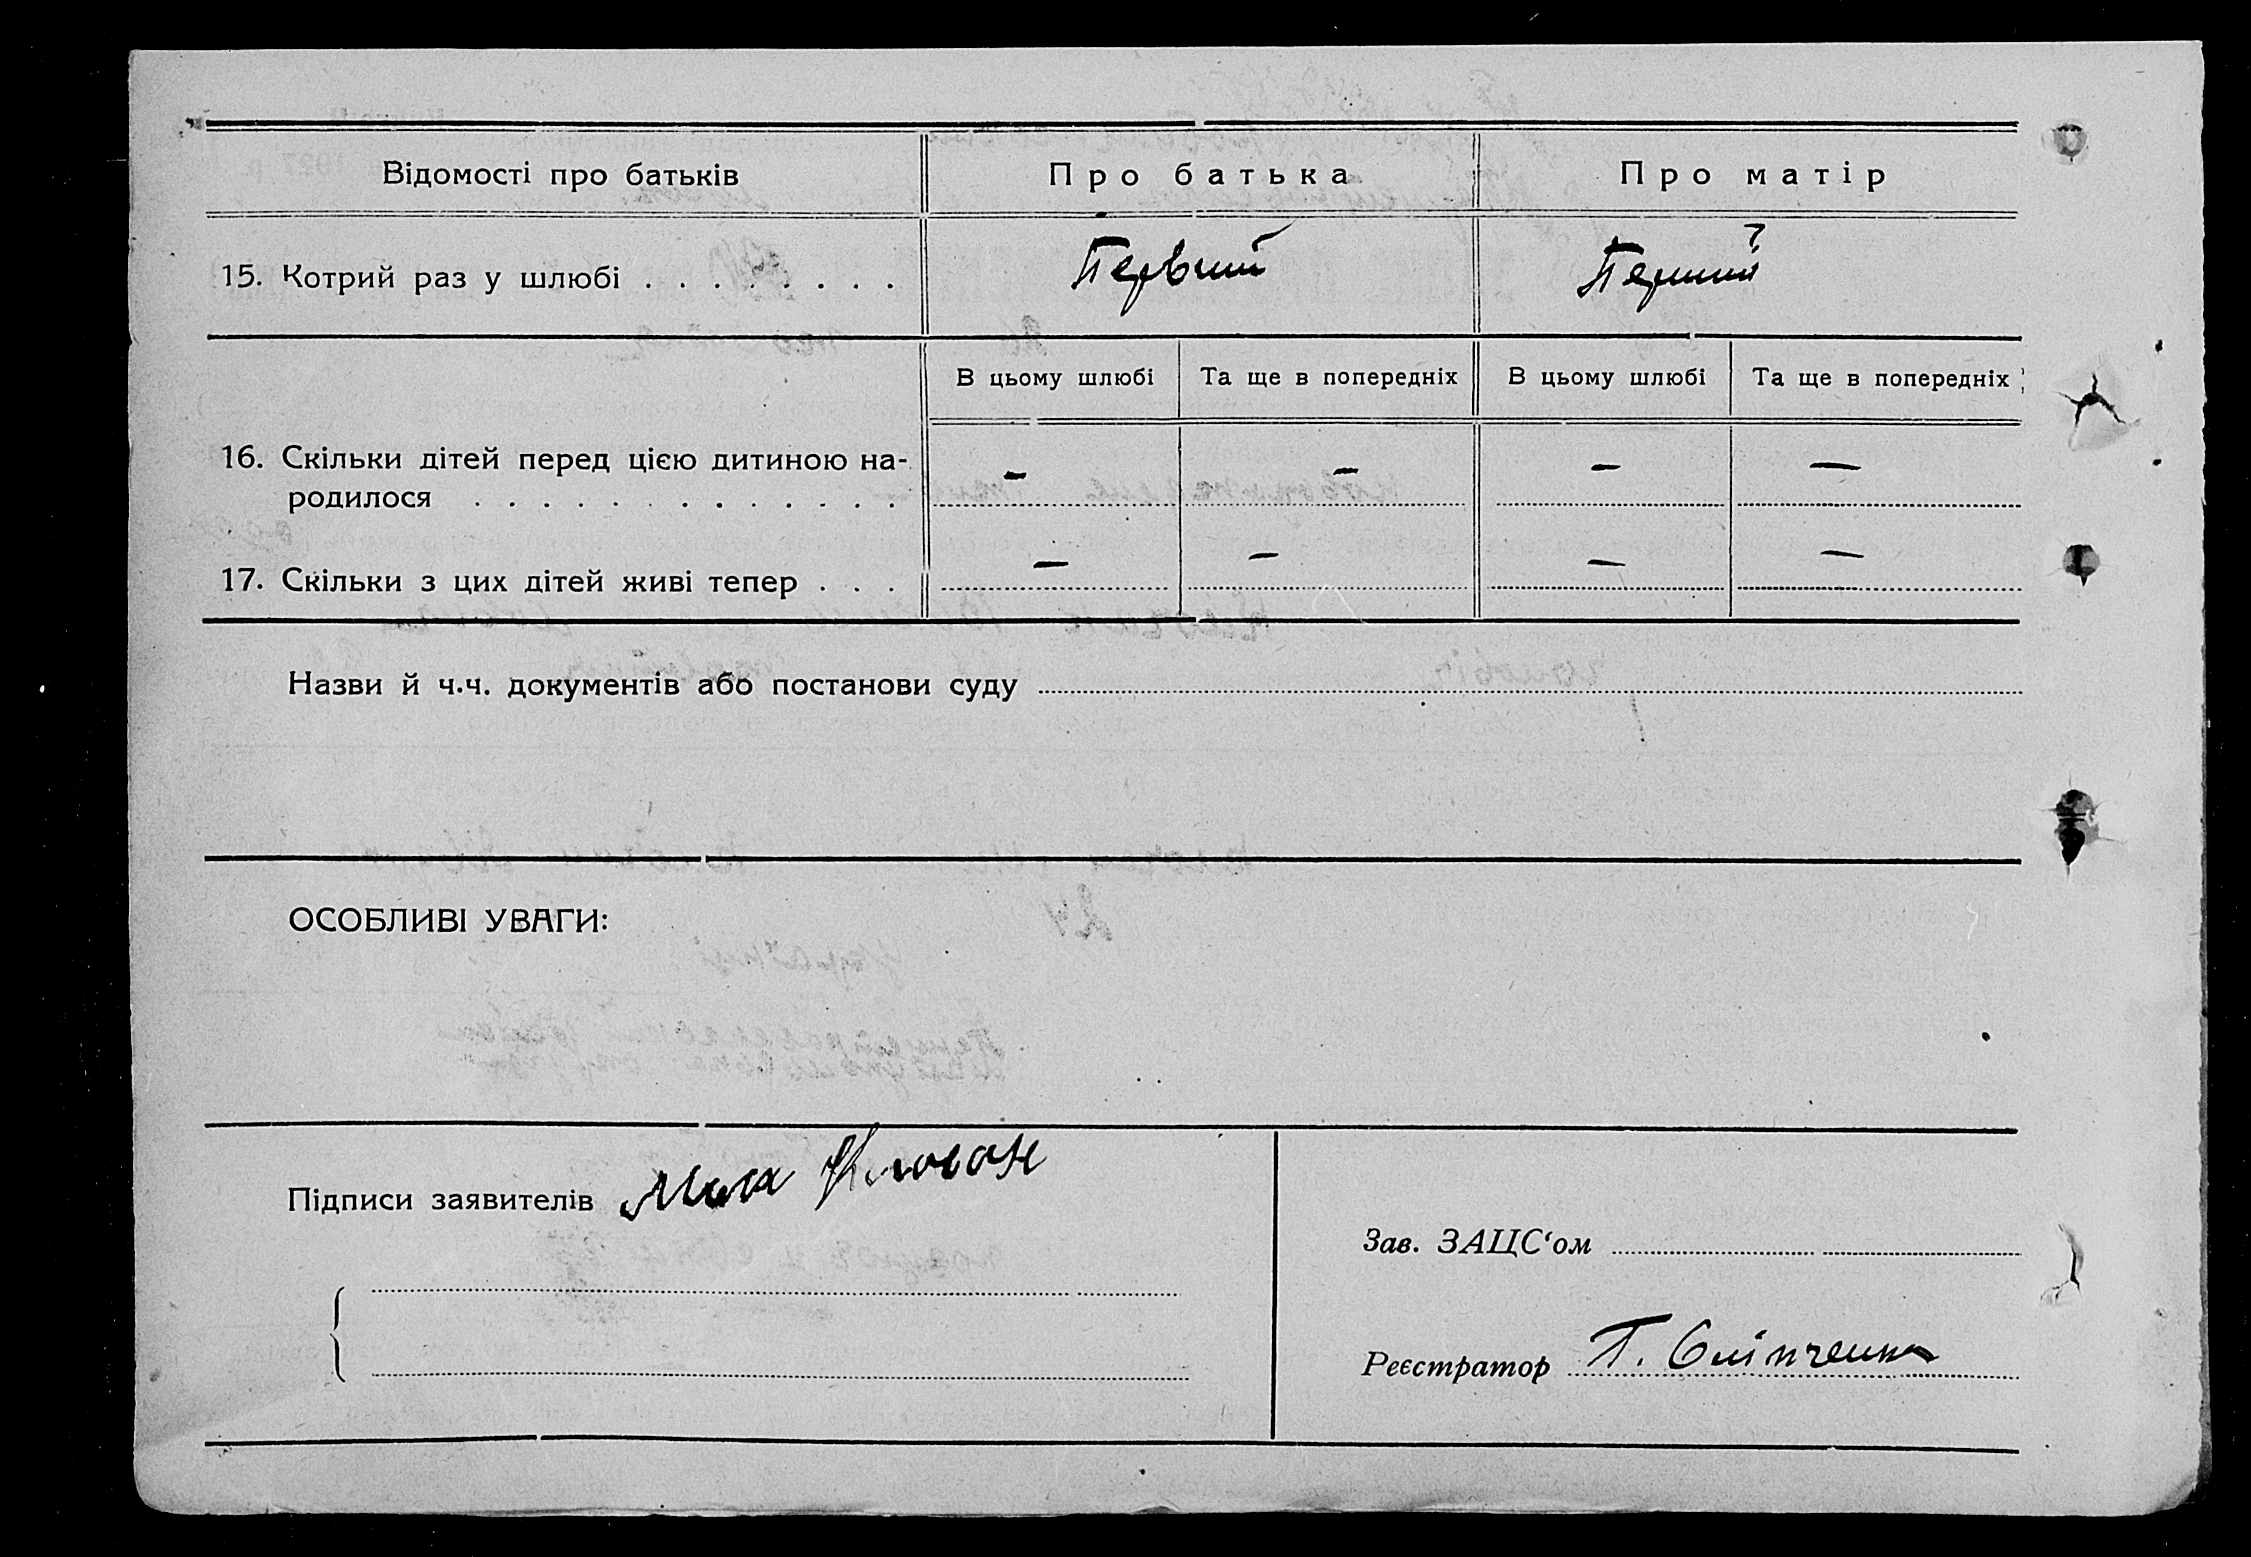 Відомості про батьків
Про батька
Про матір
15. Котрий раз у шлюбі . . . . . . . .
Первий
Перший
В цьому шлюбі
Та ще в попередніх
В цьому шлюбі
Та ще в попередніх
16. Скільки дітей перед цією дитиною на-
— — — —
родилося . . . . . . . . . . . . .
17. Скільки з цих дітей живі тепер . . .
— — — —
Назви й ч.ч. документів або постанови суду
ОСОБЛИВІ УВАГИ:
Підписи заявителів
Зав. ЗАЦС‘ом
Реєстратор Г.